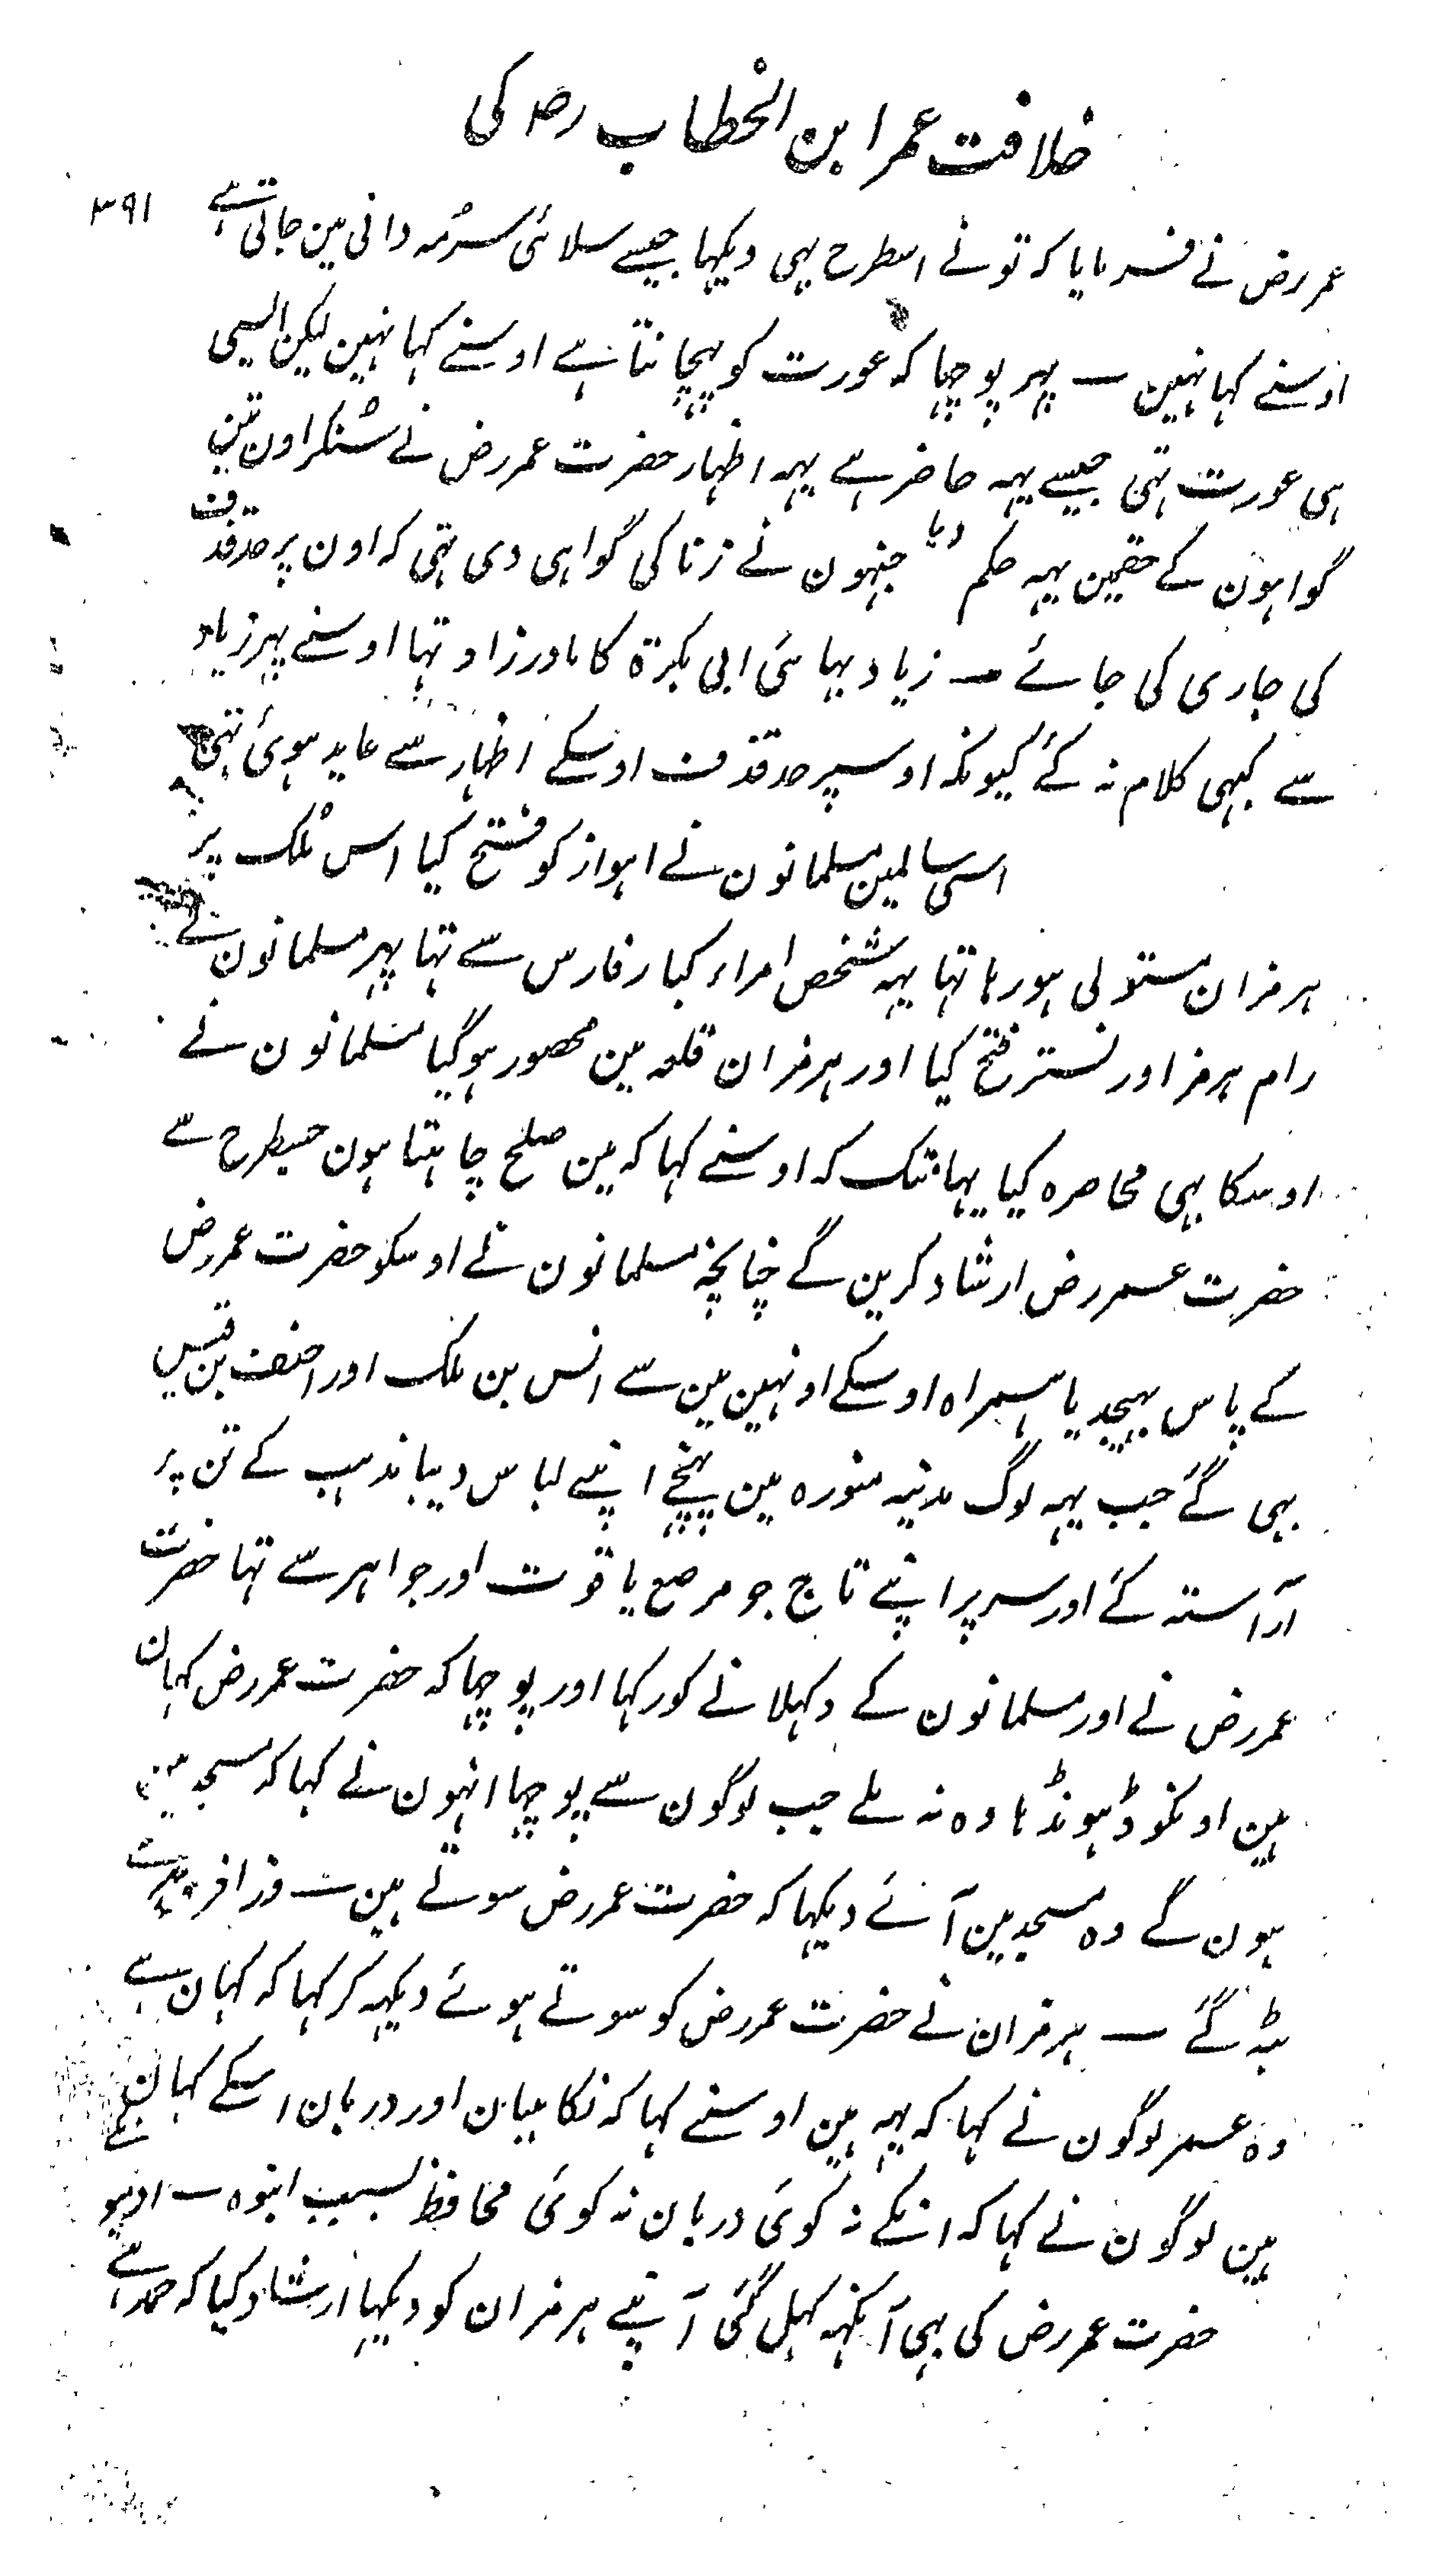 خلافت عمر ابن الخطاب رضہ کی
۳۹۱
عمر رض نے فرمایا کہ تونے اسطرح بہی دیکہا جیسے سلائی سرمہ دانی مین جاتی ہے
اوسنے کہا نہین ـ پہر پوچہا کہ عورت کو پہچانتا ہے اوسنے کہا نہین لیکن ایسی
ہی عورت تہی جیسے یہہ حاضر ہے یہہ اظہار حضرت عمر رض نے سُنکر اون تین
گواہون کے حقمین یہہ حکم دیا جنہون نے زنا کی گواہی دی تہی کہ اون پر حد قذف
کی جاری کی جائے ـ زیاد بہائی ابی بکرۃ کا مادرزاد تہا اوسنے پہر زیاد
سے کبہی کلام نہ کئے کیونکہ اوسپر حد قذف اوسکے اظہار سے عاید ہوئی تہی
اسی سالمین مسلمانون نے اہواز کو فتح کیا اس مُلک پر
ہرمزان مستولی ہو رہا تہا یہہ شخص امراء کبار فارس سے تہا پہر مسلمانون نے
رام ہرمز اور تستر فتح کیا اور ہرمزان قلعہ مین محصور ہوگیا مسلمانون نے
اوسکا بہی محاصرہ کیا یہانتک کہ اوسنے کہا کہ مین صلح چاہتا ہون جسطرح سے
حضرت عمر رض ارشاد کرین گے چنانچہ مسلمانون نے اوسکو حضرت عمر رض
کے پاس بہیجدیا ہمراہ اوسکے اونہین مین سے انس بن ملک اور احنف بن قیس
بہی گئے جب یہہ لوگ مدینہ منورہ مین پہنچے اپنے لباس دیبا مذہب کے تن پر
آراستہ کئے اور سر پر اپنے تاج جو مرصع یاقوت اور جواہر سے تہا حضرت
عمر رض نے اور مسلمانون کے دکہلانے کو رکہا اور پوچہا کہ حضرت عمر رض کہان
ہین اونکو ڈہونڈہا وہ نہ ملے جب لوگون سے پوچہا انہون نے کہا کہ مسجد مین
ہون گے وہ مسجد مین آئے دیکہا کہ حضرت عمر رض سوتے ہین ـ
بیٹہ گئے ـ ہرمزان نے حضرت عمر رض کو سوتے ہوئے دیکہہ کر کہا کہ کہان ہے
وہ عمر لوگون نے کہا کہ یہہ ہین اوسنے کہا کہ نگاہبان اور دربان اسکے کہان گئے
ہین لوگون نے کہا کہ انکے نہ کوئی دربان نہ کوئی محافظ بسبب انبوہ ـ
حضرت عمر رض کی بہی آنکہہ کہل گئی آپنے ہرمزان کو دیکہا ارشاد کیا کہ حمد اسے